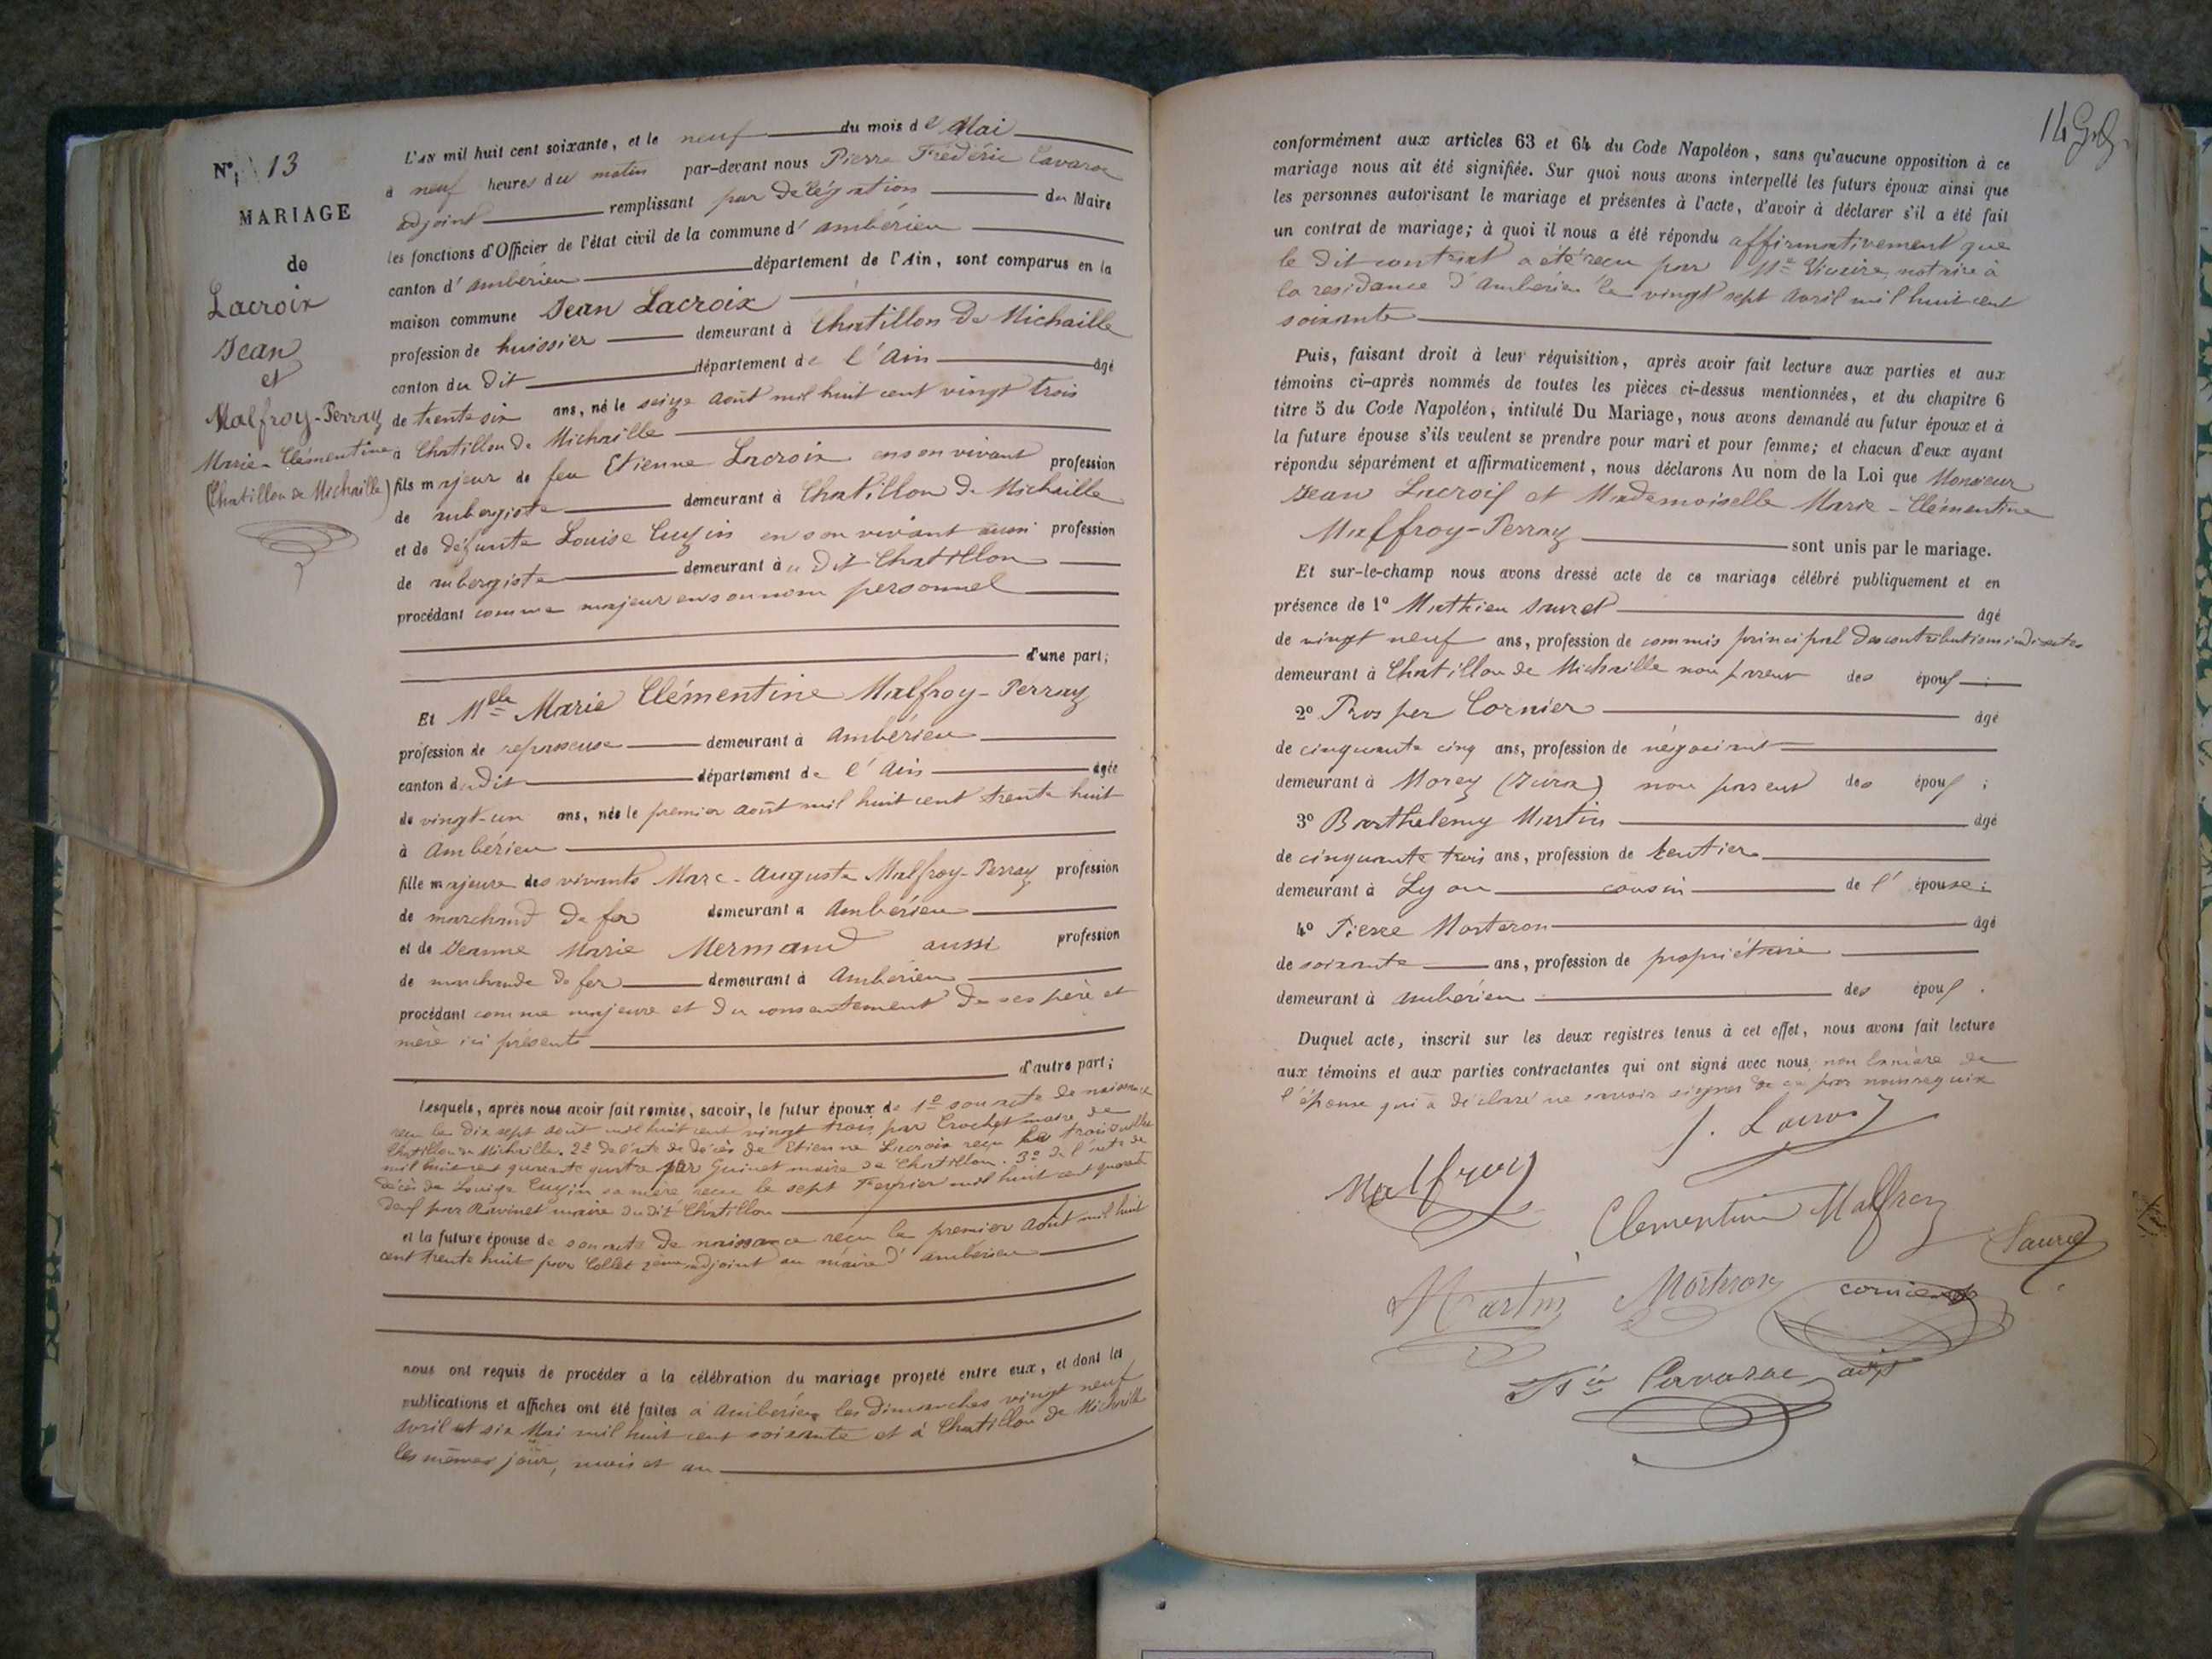 N° 13
MARIAGE
de
Lacroix
Jean
et
Malfroy-Perray
Marie-Clémentine
(Chatillon de Michaille)
L'an mil huit cent soixante, et le neuf du mois de Mai
à neuf heures du matin par-devant nous Pierre Frédéric Cavaroc
adjoint remplissant par délégation du Maire
les fonctions d'Officier de l'état civil de la commune d' ambérieu
canton d' ambérieu département de l'Ain, sont comparus en la
maison commune Jean Lacroix
profession de huissier demeurant à Chatillon de Michaille
canton du dit département de l'Ain âgé
de trente six ans, né le seize août mil huit cent vingt trois
à Chatillon de Michaille
fils majeur de feu Etienne Lacroix en son vivant profession
de aubergiste demeurant à Chatillon de Michaille
et de défunte Louise Cuzin en son vivant aussi profession
de aubergiste demeurant à u dit Chatillon
procédant comme majeur en son nom personnel
d'une part;
Et Melle Marie Clémentine Malfroy-Perray
profession de repasseuse demeurant à ambérieu
canton du dit département de l'Ain âgée
de vingt-un ans, née le premier août mil huit cent trente huit
à ambérieu
fille majeure des vivants Marc-Auguste Malfroy-Perray profession
de marchand de fer demeurant à ambérieu
et de Jeanne Marie Mermand aussi profession
de marchande de fer demeurant à ambérieu
procédant comme majeure et du consentement de ses père et
mère ici présents
d'autre part;
Lesquels, après nous avoir fait remise, savoir, le futur époux de 1° son acte de naissance
reçu le dix sept août mil huit cent vingt trois par Crochet maire de
Chatillon de Michaille. 2° de l'acte de décès de Etienne Lacroix reçu le trois
mil huit cent quarante quatre par Guinet maire de Chatillon. 3° de l'acte de
décès de Louise Cuzin sa mère reçu le sept Fevrier mil huit cent quarante
neuf par Ravinet maire du dit Chatillon
et la future épouse de son acte de naissance reçu le premier août mil huit
cent trente huit par Collet 2ème adjoint au maire d' ambérieu
nous ont requis de procéder à la célébration du mariage projeté entre eux, et dont les
publications et affiches ont été faites à ambérieu les dimanches vingt neuf
avril et six Mai mil huit cent soixante et à Chatillon de Michaille
les mêmes jour, mois et an
conformément aux articles 63 et 64 du Code Napoléon, sans qu'aucune opposition à ce
mariage nous ait été signifiée. Sur quoi nous avons interpellé les futurs époux ainsi que
les personnes autorisant le mariage et présentes à l'acte, d'avoir à déclarer s'il a été fait
un contrat de mariage; à quoi il nous a été répondu affirmativement que
le dit contrat a été reçu par Me notaire à
la residance d'ambérieu le vingt sept avril mil huit cent
soixante
Puis, faisant droit à leur réquisition, après avoir fait lecture aux parties et aux
témoins ci-après nommés de toutes les pièces ci-dessus mentionnées, et du chapitre 6
titre 5 du Code Napoléon, intitulé Du Mariage, nous avons demandé au futur époux et à
la future épouse s'ils veulent se prendre pour mari et pour femme; et chacun d'eux ayant
répondu séparément et affirmativement, nous déclarons Au nom de la Loi que Monsieur
Jean Lacroix et Mademoiselle Marie-Clémentine
Malfroy-Perray sont unis par le mariage.
Et sur-le-champ nous avons dressé acte de ce mariage célébré publiquement et en
présence de 1° Mathieu Sauret âgé
de vingt neuf ans, profession de commis principal des contributions indirectes
demeurant à Chatillon de Michaille non parent des époux;
2° Prosper Cornier âgé
de cinquante cinq ans, profession de négociant
demeurant à Morez (Jura) non parent des époux;
3° Barthelemy Martin âgé
de cinquante trois ans, profession de rentier
demeurant à Lyon cousin de l'épouse;
4° Pierre Morteron âgé
de soixante ans, profession de propriétaire
demeurant à ambérieu des époux.
Duquel acte, inscrit sur les deux registres tenus à cet effet, nous avons fait lecture
aux témoins et aux parties contractantes qui ont signé avec nous, non la mère de
l'épouse qui a déclaré ne savoir signer de ce par nous requise
J. Lacroix
Malfroy
Clementine Malfroy
Sauret
Martin
Morteron
cornier
Cavaroc, adjt